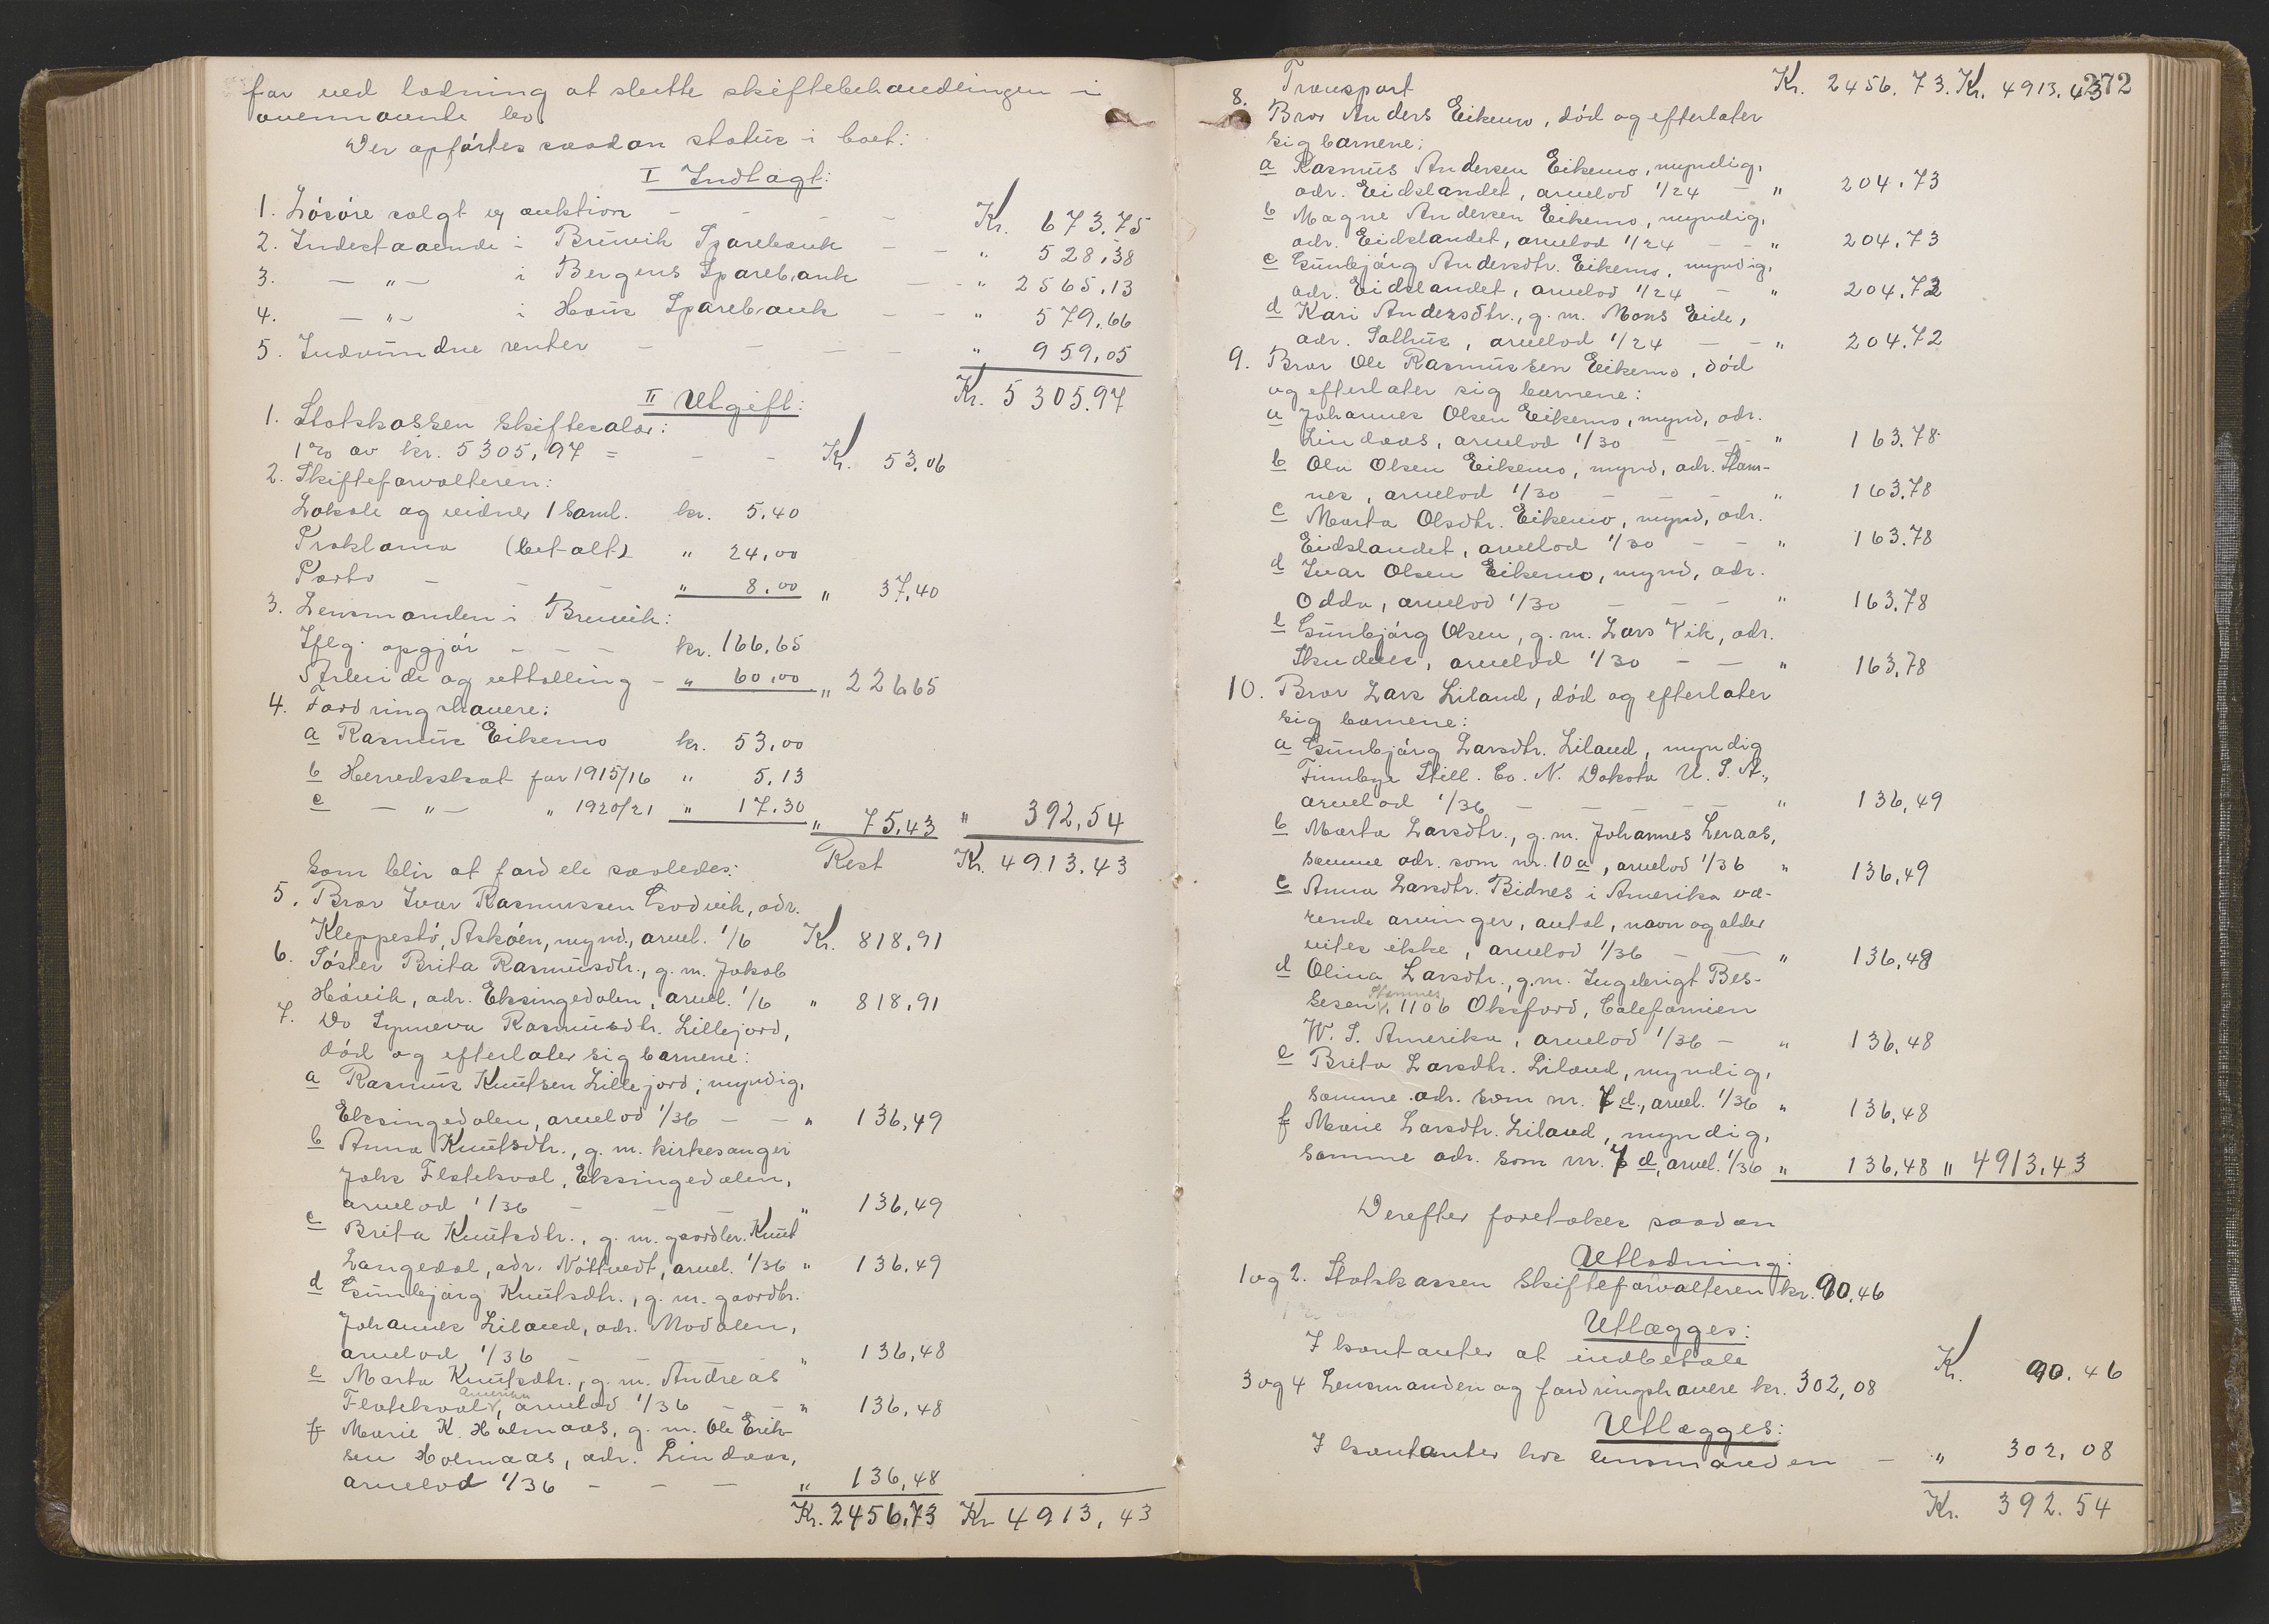 for ved lodning at slutte skiftebehandlingen i
ovennævnte bo
Der opførtes saadan status i boet:
I Indtægt:
1. Løsøre solgt ug auktion - - - - Kr. 673.75
2. Indestaaende i Bruvik Sparebank - - " 528,38
3. - " - i Bergens Sparebank - - " 2565,13
4. - " - i Haus Sparebank - - " 579,66
5. Indvundne renter - - - - " 959,05
Kr. 5305.97
II Utgift:
1. Statskassen skiftesalær:
1% av kr. 5305,97 = - - Kr. 53,06
2. Skifteforvalteren:
Lokale og vidner 1 saml. kr. 5.40
Proklama (betalt) " 24,00
Porto - - - " 8,00 " 37,40
3. Lensmanden i Bruvik:
Iflg. opgjør - - - kr. 166,65
Arbeide og uttælling - " 60,00 " 226,65
4. Fordringshavere:
a Rasmus Eikemo kr. 53,00
b Herredsskat for 1915/16 " 5,13
c - " - " 1920/21 " 17.30 " 75,43 " 392,54
Rest Kr. 4913,43
som blir at fordele saaledes:
5. Bror Ivar Rasmussen Godvik, adr.
Kleppestø, Askøen, mynd., arvel. 1/6 Kr. 818,91
6. Søster Brita Rasmusdtr., g. m. Jakob
Høvik, adr. Eksingedalen, arvel. 1/6 " 818,91
7. Do Synneva Rasmusdtr. Lillejord,
død og efterlater sig barnene:
a Rasmus Knutsen Lillejord, myndig,
Eksingedalen, arvelod 1/36 - - " 136,49
b Anna Knutsdtr., g. m. kirkesanger
Johs Flatekval, Eksingedalen,
arvelod 1/36 - - - " 136,49
c Brita Knutsdtr., g. m. gaardbr. Knut
Langedal, adr. Nøttvedt, arvel. 1/36 " 136,49
d Gunbjørg Knutsdtr., g. m. gaardbr.
Johannes Liland, adr. Modalen,
arvelod 1/36 - - - " 136,48
e Marta Knutsdtr., g. m. Andreas
Amerika
Flatekval, arvelod 1/36 - - " 136,48
f Marie K. Holmaas, g. m. Ole Erik-
sen Holmaas, adr. Lindaas,
arvelod 1/36 - - - " 136,48
Kr. 2456,73 Kr 4913,43
272
Transport Kr. 2456.73. Kr. 4913.43
8. Bror Anders Eikemo, død og efterlater
sig barnene:
a Rasmus Andersen Eikemo, myndig,
adr. Eidslandet, arvelod 1/24 - " 204,73
b Magne Andersen Eikemo, myndig,
adr. Eidslandet, arvelod 1/24 - - " 204,73
c Gunbjørg Andersdtr. Eikemo, myndig,
adr. Eidslandet, arvelod 1/24 - " 204,72
d Kari Andersdtr., g. m. Mons Eide,
adr. Salhus, arvelod 1/24 - - " 204.72
9. Bror Ole Rasmussen Eikemo, død
og efterlater sig barnene:
a Johannes Olsen Eikemo, mynd, adr.
Lindaas, arvelod 1/30 - - - " 163.78
b Ola Olsen Eikemo, mynd, adr. Stam-
nes, arvelod 1/30 - - - " 163.78
c Marta Olsdtr. Eikemo, mynd, adr.
Eidslandet, arvelod 1/30 - - " 163.78
d Ivar Olsen Eikemo, mynd, adr.
Odda, arvelod 1/30 - - - " 163,78
e Gunbjørg Olsen, g. m. Lars Vik, adr.
arvelod 1/30 - - " 163,78
10. Bror Lars Liland, død og efterlater
sig barnene:
a Gunbjørg Larsdtr. Liland, myndig
Still. Co. N. Dakota U. S. A.,
arvelod 1/36 - - - - - " 136,49
b Marta Larsdtr., g. m. Johannes Leraas,
samme adr. som nr. 10a, arvelod 1/36 " 136,49
c Anna Larsdtr. Bidnes i Amerika væ-
rende arvinger, antal, navn og alder
vites ikke, arvelod 1/36 - - " 136,48
d Olina Larsdtr., g. m. Ingebrigt Bes-
Stamnes
sesen, 1106 Oksford, Calefornien
W. S. Amerika, arvelod 1/36 - " 136,48
e Brita Larsdtr. Liland, myndig,
samme adr. som nr. 7 d., arvel. 1/36 " 136,48
f Marie Larsdtr. Liland, myndig,
samme adr. som nr. 7 d, arvel. 1/36 " 136,48 " 4913,43
Derefter foretokes saadan
Utlodning:
1 og 2. Statskassen Skifteforvalteren kr. 90,46
Utlægges:
I kontanter at indbetale Kr. 90.46
3 og 4 Lensmanden og fordringshavere kr. 302,08
Utlægges:
I kontanter hos lensmanden - " 302,08
Kr. 392.54